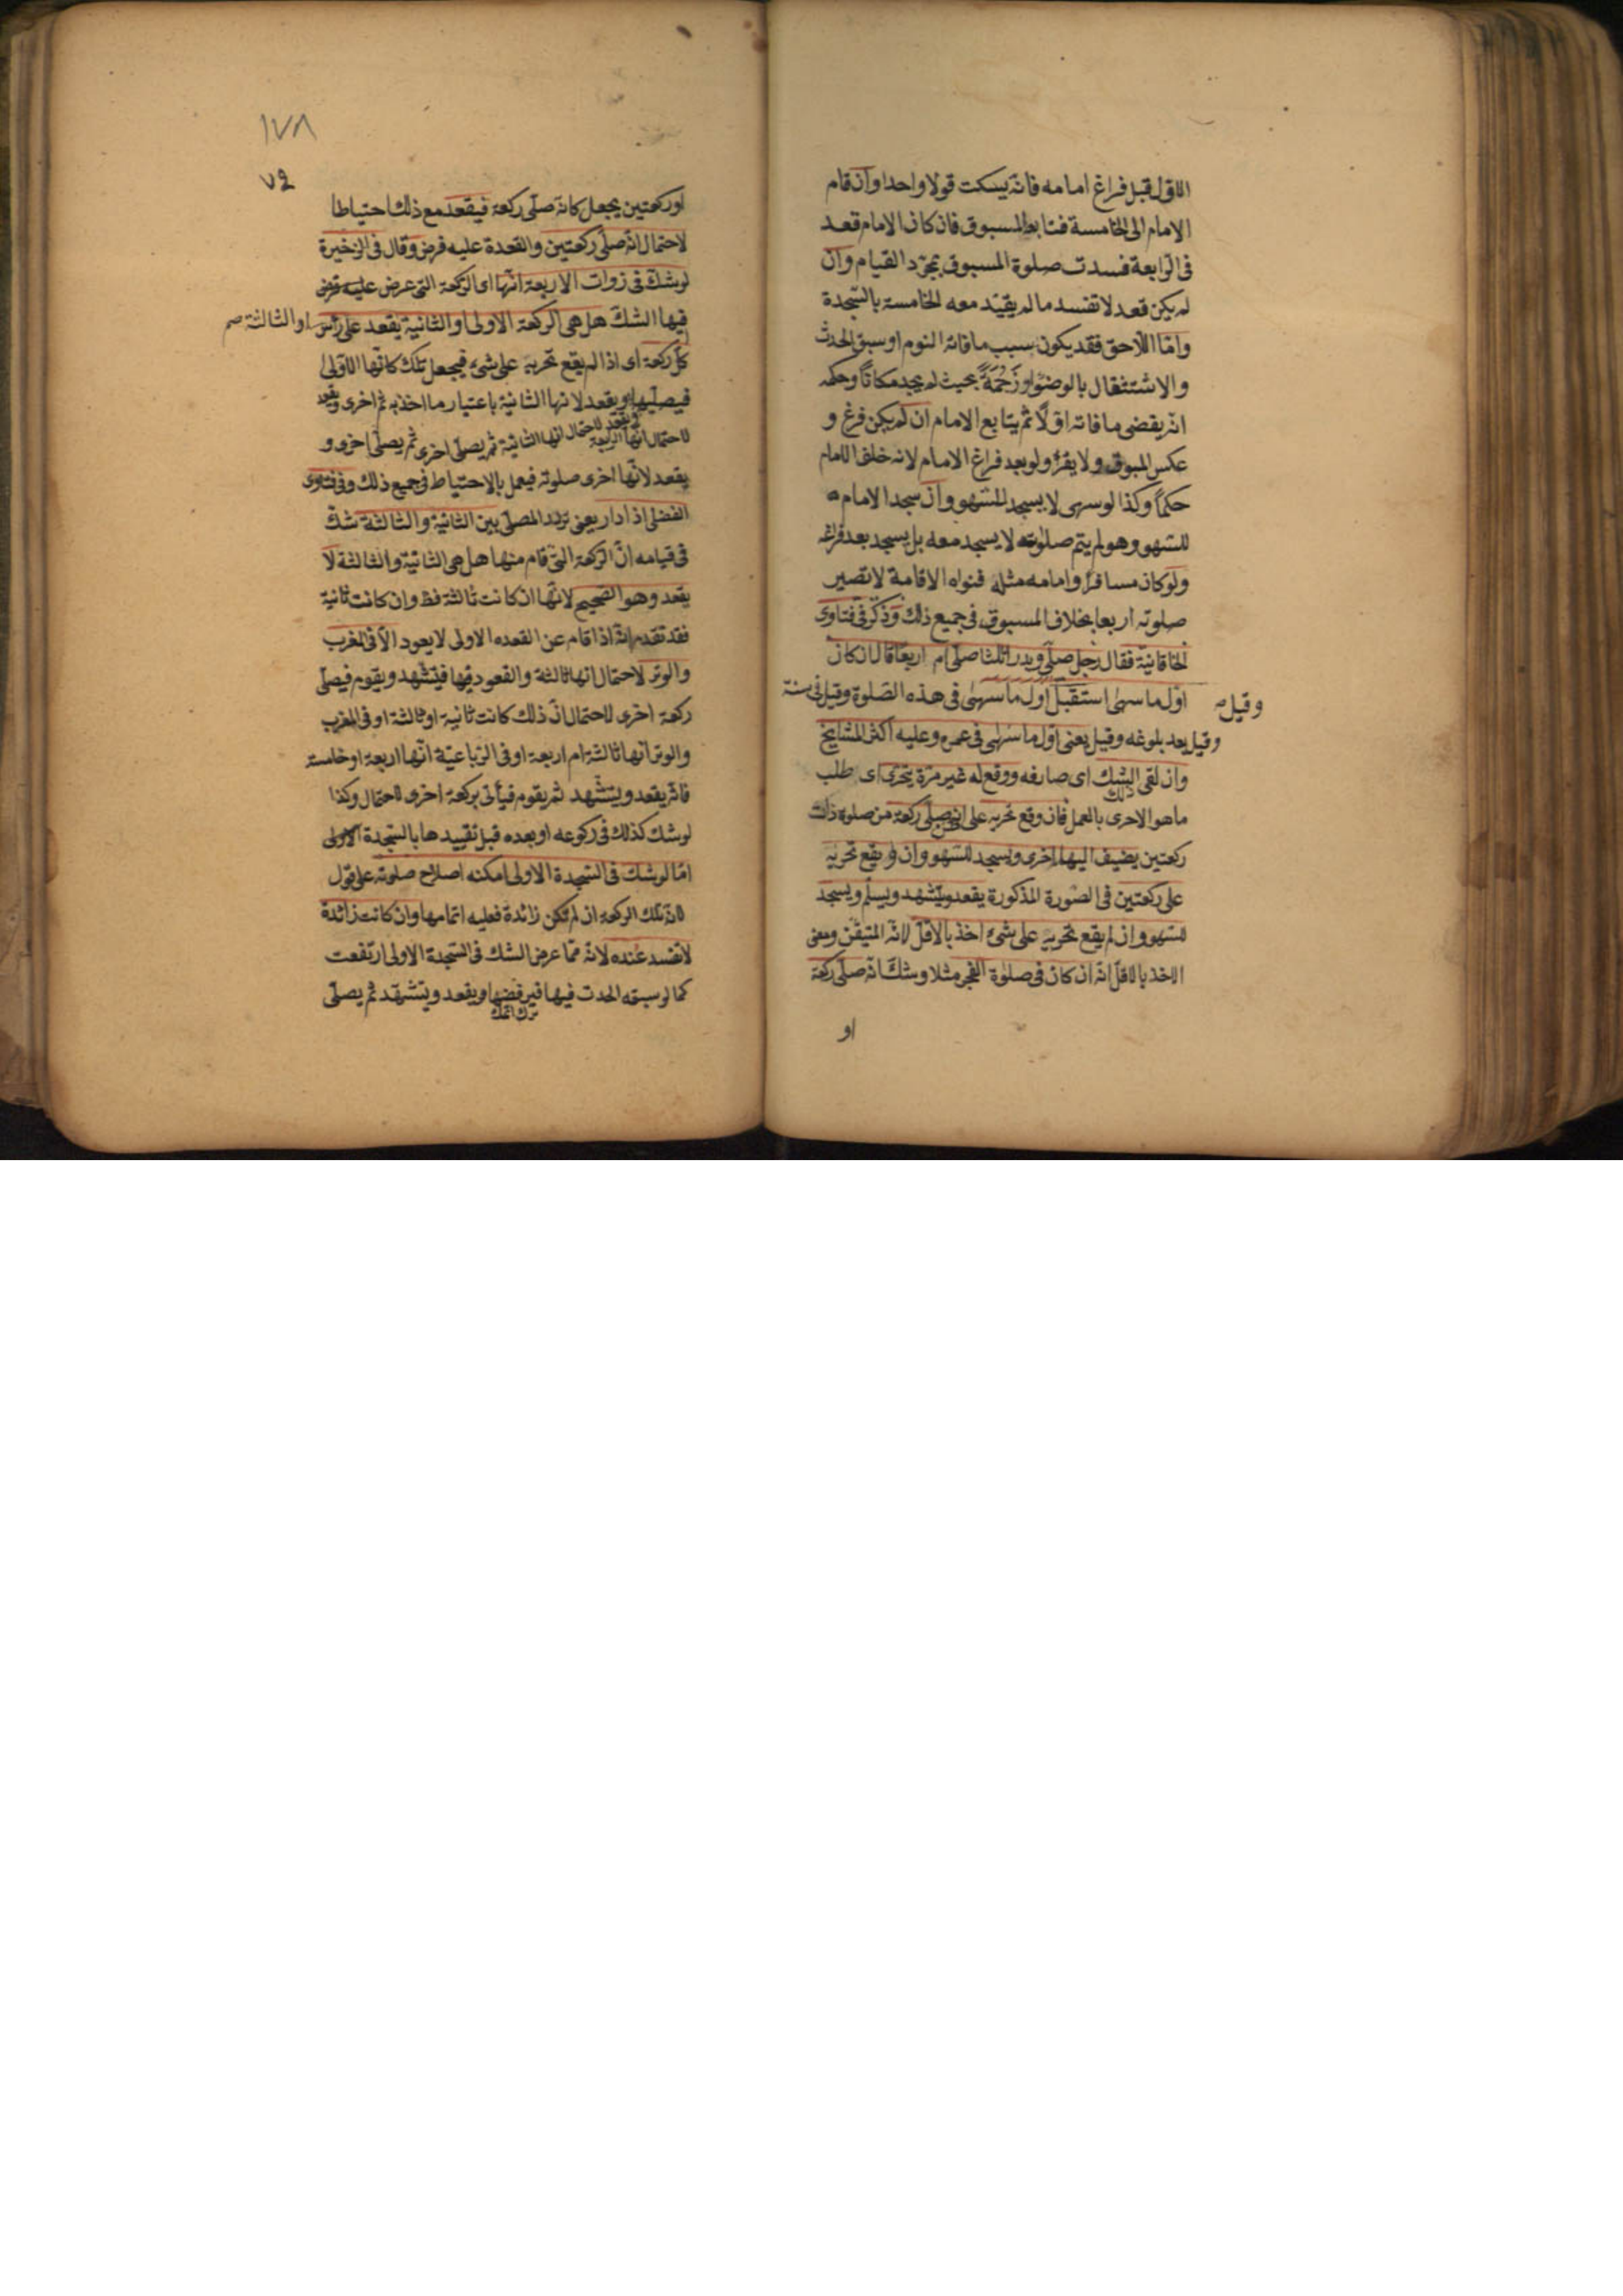 الاول قبل فراغ امامه فانه يسكت قولا واحدا وان قام
الامام الى الخامسة فتابعه المسبوق فان كان الامام قعد
فى الرابعة فسدت صلوة المسبوق بمجرد القيام وان
لم يكن قعد لا تفسد ما لم يقيد معه الخامسة بالسجدة
واما اللاحق فقد يكون سبب ما فاته النوم او سبق الحدث
والاشتغال بالوضؤ او زَحْمَةً بحيث لم يجد مكانا وحكمه
انه يقضى ما فاته اولًا ثم يتابع الامام ان لم يكن فرغ و
عكس المسبوق ولا يقرؤ ولو بعد فراغ الامام لانه خلف الامام
حكمًا وكذا لو سهى لا يسجد للسهو وان سجد الامام
للسهو وهو لم يتم صلوته لا يسجد معه بل يسجد بعد فراغه
ولو كان مسافرا وامامه مثله فنواه الاقامة لا تصير
صلوته اربعا بخلاف المسبوق فى جميع ذلك وذكر فى فتاوى
الخاقانية فقال رجل صلى ولم يدر اثلثا صلى ام اربعا قال ان كان
اول ما سهى استقبل اول ما سهى فى هذه الصلوة وقيل فى سنة
وقيل
وقيل بعد بلوغه وقيل يعنى اول ما سهى فى عمره وعليه اكثر المشايخ
وان لقى الشك اى صارفه ووقع له غير مرة يتحرى اى طلب
ذلك
ما هو الاحرى بالعمل فان وقع تحريه على انه صلى ركعة من صلوة ذات
ركعتين يضيف اليها اخرى ويسجد للسهو وان وقع تحريه
على ركعتين فى الصورة المذكورة يقعد ويتشهد ويسلم ويسجد
للسهو وان لم يقع تحريه على شئ اخذ بالاقل لانه المتيقن ومعنى
الاخذ بالاقل انه ان كان فى صلوة الفجر مثلا وشك انه صلى ركعة
او
١٧٨
٧٢
او ركعتين يجعل كانه صلى ركعة فيقعد مع ذلك احتياطا
لاحتمال انه صلى ركعتين والقعدة عليه فرض وقال فى الذخيرة
لو شك فى زوات الاربعة انها اى الركعة التى عرض عليه
فيها الشك هل هى الركعة الاولى او الثانية يقعد على رأس
او الثالثة صح
كل ركعة اى اذا لم يقع تحريه على شئ فيجعل تلك كانها الاولى
فيصليها ويقعد لانها الثانية باعتبار ما اخذ به ثم اخرى ويقعد
لاحتمال انها الرابعة ويقعد لاحتمال انها الثانية ثم يصلى اخرى ثم يصلى اخرى و
يقعد لانها اخرى صلوته فيعمل بالاحتياط فى جميع ذلك وفى فتاوى
الفضلى اذا دار يعنى تردد المصلى بين الثانية والثالثة شك
فى قيامه ان الركعة التى قام منها هل هى الثانية والثالثة لا
يقعد وهو الصحيح لانها ان كانت ثالثة فظ وان كانت ثانية
فقد تقدم انه اذا قام عن القعده الاولى لا يعود الا فى المغرب
والوتر لاحتمال انها ثالثة والقعود فيها فيتشهد ويقوم فيصلى
ركعة اخرى لاحتمال ان ذلك كانت ثانية او ثالثة او فى المغرب
والوتر انها ثالثة ام اربعة او فى الرباعية انها اربعة او خامسة
فانه يقعد ويتشهد ثم يقوم فيأتى بركعة اخرى لاحتمال وكذا
لو شك كذلك فى ركوعه او بعده قبل تقييدها بالسجدة الاولى
اما لو شك فى السجدة الاولى امكنه اصلاح صلوته على قول
لان تلك الركعة ان لم تكن زائدة فعليه اتمامها وان كانت زائدة
لا تفسد عنده لانه مما عرض الشك فى السجدة الاولى ارتفعت
كما لو سبقه الحدث فيها فيرفضها ويقعد ويتشهد ثم يصلى